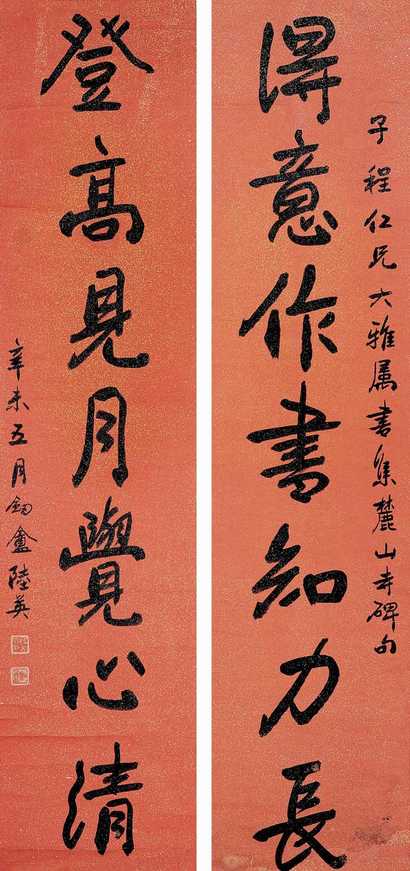 子程仁兄大雅属書集麓山寺碑句
得意作書知力長
登高見月覺心清
辛未五月鉤盦陸英